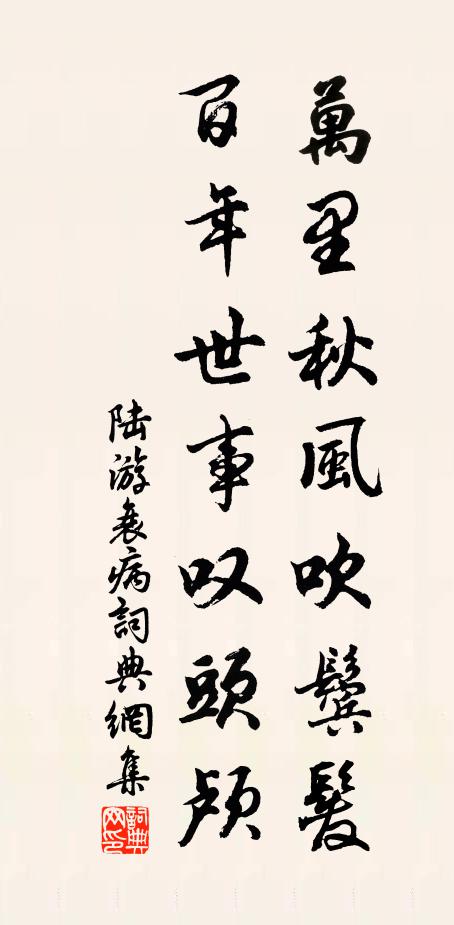 萬里秋風吹鬢髮
百年世事叹頭颅
陆游衰病詞典網集
詞典网印